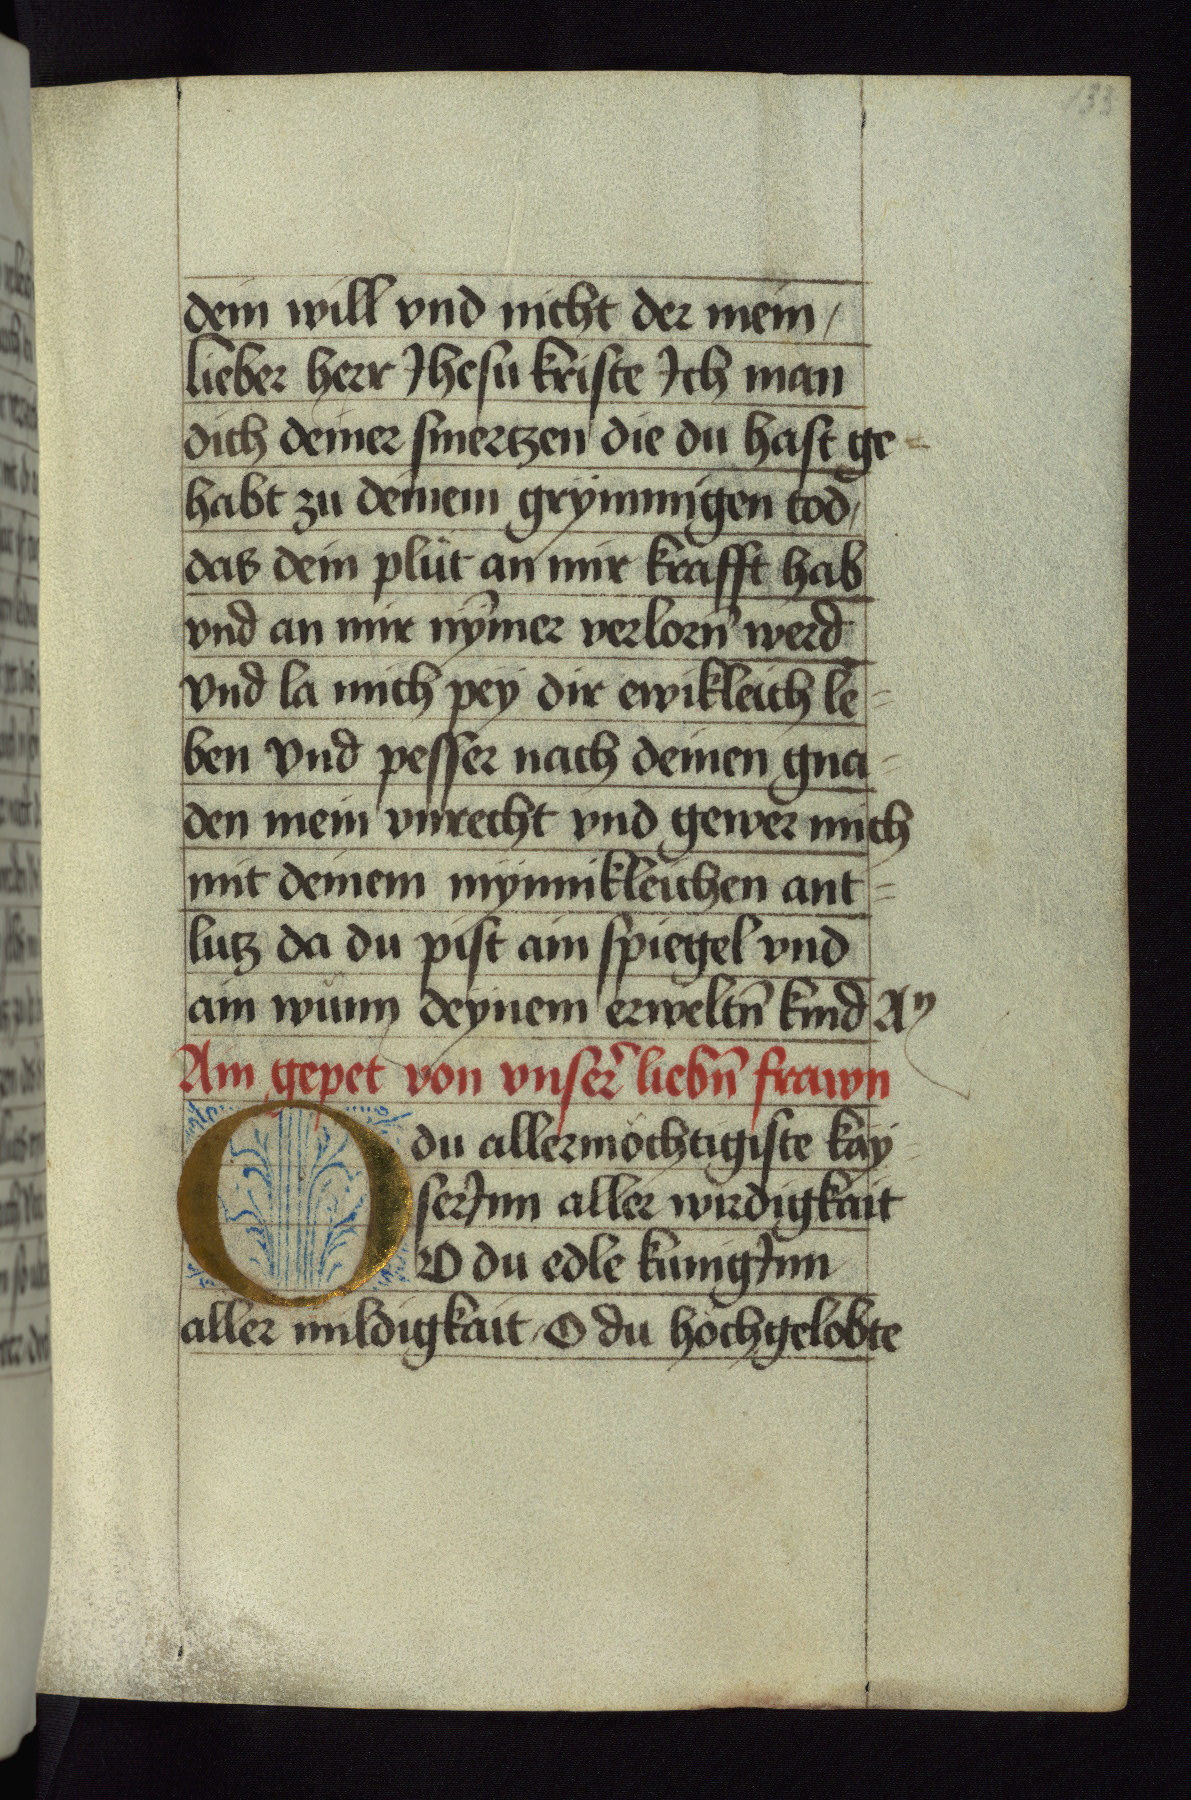 133
dein will vnd nicht der mein /
lieber herr Jhesu kriste Jch man
dich deiner smertzen die du hast ge=
habt zu deinem grymmigen tod /
das dein plüt an mir krafft hab
vnd an mir nȳmer verlorn̄ werd
Vnd la mich pey dir ewikleich le=
ben Vnd pesser nach deinen gna=
den mein vnrecht vnd gewer mich
mit deinem mynnikleichen ant=
lutz da du pist ain spiegel vnd
ain wunn deynem erweltn̄ kind
Ain gepet von vnser̄ liebn̄ frawn
O du allermöchtigiste kay=
serJnn aller wirdigkait
O du edle kunigJnn
aller mildigkait / O du hochgelobte